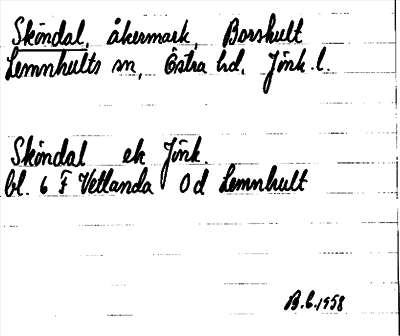 Sköndal, åkermark, Borshult
Lemnhults sn, Östra hd, Jönk. l.
Sköndal ek Jönk.
bl. 6 F Vetlanda 0 d Lemnhult
B.C. 1958